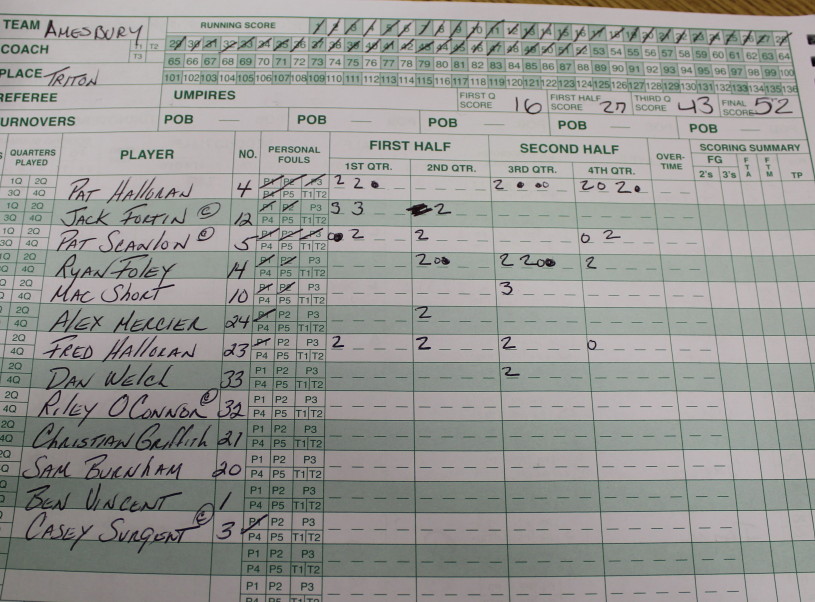 TEAM AMESBURY RUNNING SCORE 1 2 3 4 5 6 7 8 9 10 11 12 13 14 15 16 17 18 19 20 21 22 23 24 25 26 27 28
COACH T1 T2 29 30 31 32 33 34 35 36 37 38 39 40 41 42 43 44 45 46 47 48 49 50 51 52 53 54 55 56 57 58 59 60 61 62 63 64
T3 65 66 67 68 69 70 71 72 73 74 75 76 77 78 79 80 81 82 83 84 85 86 87 88 89 90 91 92 93 94 95 96 97 98 99 100
PLACE TRITON 101 102 103 104 105 106 107 108 109 110 111 112 113 114 115 116 117 118 119 120 121 122 123 124 125 126 127 128 129 130 131 132 133 134 135 136
REFEREE UMPIRES FIRST Q SCORE 16 FIRST HALF SCORE 27 THIRD Q SCORE 43 FINAL SCORE 52
URNOVERS POB POB POB POB POB
S QUARTERS PLAYED PLAYER NO. PERSONAL FOULS FIRST HALF SECOND HALF OVER-TIME SCORING SUMMARY
1ST QTR. 2ND QTR. 3RD QTR. 4TH QTR. FG 2's 3's FTA FTM TP
1Q 2Q 3Q 4Q PAT HALLORAN 4 P1 P2 P3 P4 P5 T1 T2 2 2 2 20 2
1Q 2Q 3Q 4Q JACK FORTIN C 12 P1 P2 P3 P4 P5 T1 T2 3 3 2
1Q 2Q 3Q 4Q PAT SCANLON C 5 P1 P2 P3 P4 P5 T1 T2 2 2 0 2
1Q 2Q 3Q 4Q RYAN FOLEY 14 P1 P2 P3 P4 P5 T1 T2 2 2 2 2
2Q 4Q MAC SHORT 10 P1 P2 P3 P4 P5 T1 T2 3
2Q 4Q ALEX MERCIER 24 P1 P2 P3 P4 P5 T1 T2 2
2Q 4Q FRED HALLORAN 23 P1 P2 P3 P4 P5 T1 T2 2 2 2 0
2Q 4Q DAN WELCH 33 P1 P2 P3 P4 P5 T1 T2 2
2Q 4Q RILEY O'CONNOR C 32 P1 P2 P3 P4 P5 T1 T2
2Q 4Q CHRISTIAN GRIFFITH 21 P1 P2 P3 P4 P5 T1 T2
2Q SAM BURNHAM 20 P1 P2 P3 P4 P5 T1 T2
BEN VINCENT 1 P1 P2 P3 P4 P5 T1 T2
CASEY SURGENT C 3 P1 P2 P3 P4 P5 T1 T2
P1 P2 P3 P4 P5 T1 T2
P1 P2 P3 P4 P5 T1 T2